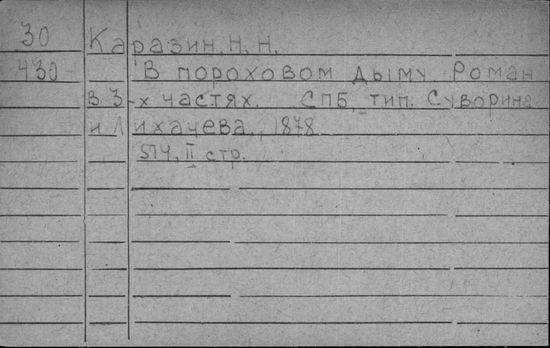 30 Каразин, Н. Н.
430 В пороховом дыму. Роман
в 3-х частях. СПБ, тип. Суворина
и Лихачева, 1878.
514, II стр.